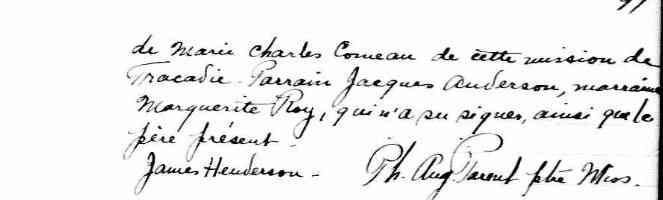 de Marie Charles Comeau de cette mission de
Tracadie. Parrain Jacques Anderson, marraine
Marguerite Roy, qui n'a su signer, ainsi que le
père présent.
James Henderson - Ph. Aug Parent ptre Miss.